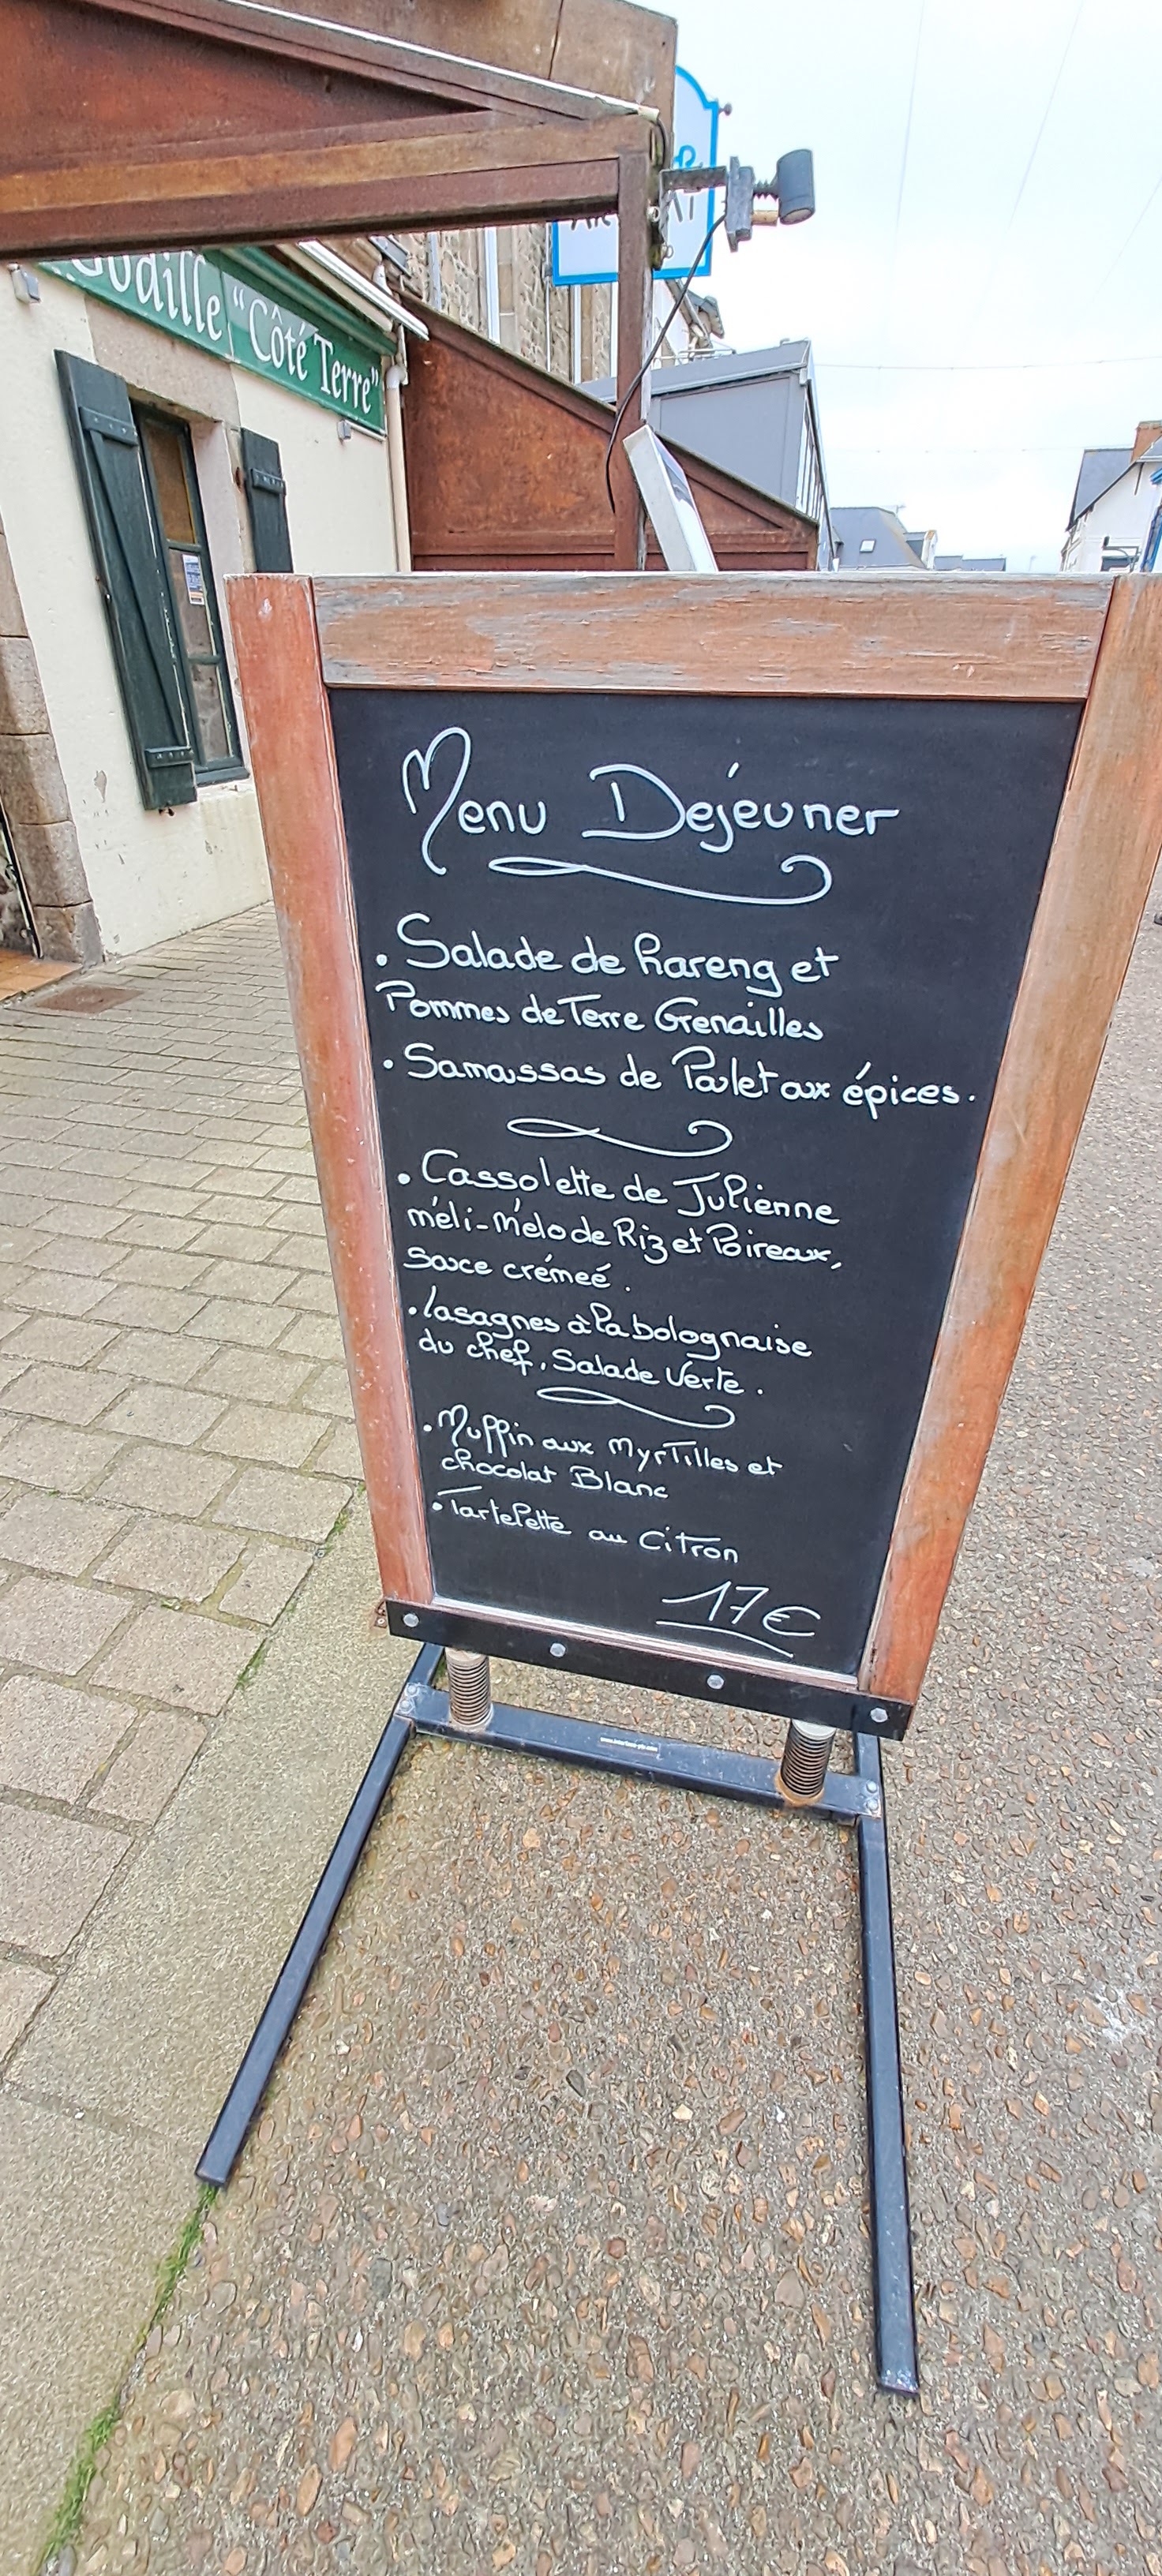 Godille "Côté Terre"
Menu Dejéuner
. Salade de hareng et
Pommes de Terre Grenailles
. Samoussas de Poulet aux épices.
. Cassolette de Julienne
méli-Mélo de Riz et Poireaux,
Sauce crémeé.
. lasagnes à la bolognaise
du chef, Salade Verte.
. Muffin aux MyrTilles et
chocolat Blanc
. Tartelette au Citron
17€